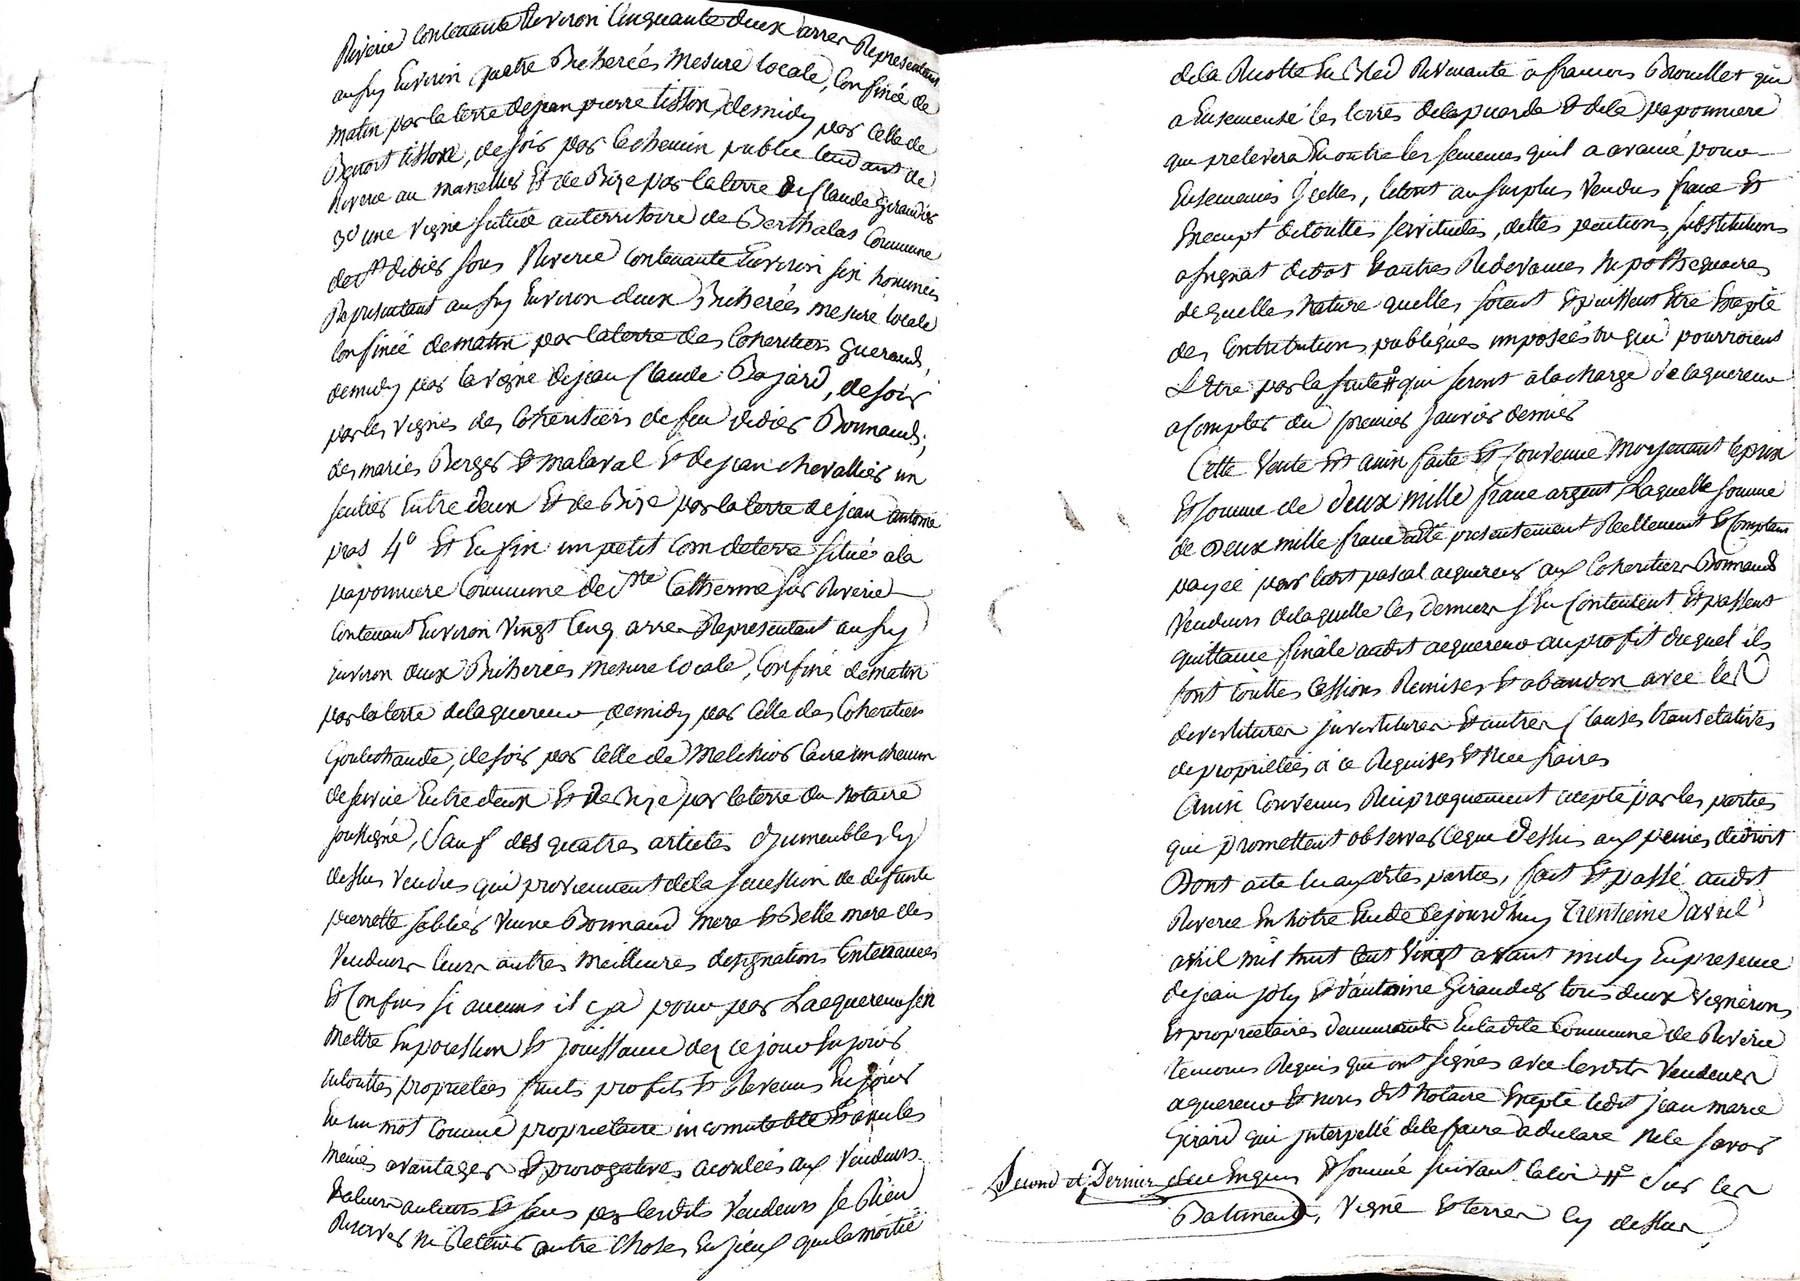 Riverie contenante Environ Cinquante deux arres Representant
aussy Environ quatre Bicherées Mesure locale, Confinée de
matin par la terre de jean pierre tisson, de midy par celle de
Benoit tisson, de soir par le chemin public tendant de
Riverie au Et de Bize par la terre de Claude Giraudier
3º une vigne située au territoire de Berthalas Commune
de St didier sous Riverie contenante Environ six hommées
Représentant aussy Environ deux Bicherées mesure locale
Confinée de matin par la terre des Coheritiers Gueraud,
de midy par la vigne de jean Claude Bajard, de soir
par les vignes des Coheritiers de feu didier Bonnand,
des mariés Berger et Malaval et de jean chevallier un
sentier Entre deux Et de Bize par la terre de jean antoine
pras 4º Et Enfin un petit Coin de terre situé a la
paponniere Commune de Ste Catherine sur Riverie
Contenant Environ Vingt Cinq arres Representant aussy
Environ deux Bicherées mesure locale, Confiné de matin
par la terre de laquereur, de midy par Celle des Coheritiers
Goulechaude, de soir par Celle de Melchior un chemin
de service Entre deux Et de Bize par la terre du Notaire
soussigné, Sauf des quatres articles dimmeubles cy
dessus vendus qui proviennent de la sucession de defunte
pierrette veuve Bonnand mere et Belle mere des
Vendeurs leurs autres meilleures designations Contenances
Et Confins si aucuns il y a pour par Lacquereur sen
Mettre En possession Et jouissance dez ce jour En jouir
En touttes proprietées fruits profits Et Revenus En jouir
En un mot comme proprietaire incomutable Et avec les
mêmes avantages Et prerogatives acordées aux Vendeurs
Et a leurs auteurs Et sans par lesdits Vendeurs se Rien
Reserver ni Retenir autre Chose En Iceux que la moitié
de la Recolte En Bled Revenante a francois Brouillet qui
a Ensemensé les terres de la et de la paponniere
qui prelevera En outre les semences quil a avancé pour
Ensemencer Icelles, letout au surplus Vendus franc Et
Exempt de touttes servitudes, dettes pentions, substitutions
asignat de dot Et autres Redevances hypothequaires
de quelles Nature quelles soient Et puissent Etre Excepté
des Contributions publiques imposées ou qui pourroient
LEtre par la suitte # qui seront a la charge de laquereur
a Compter du premier janvier dernier
Cette Vente Est ainsi faite Et Convenue Moyenant le prix
Et somme de deux mille franc argent Laquelle somme
de Deux mille franc a été presentement Reellement Et Comptant
payée par ledit pascal aquereur aux Coheritiers Bonnand
Vendeurs de laquelle les derniers sEn Contentent Et passent
quittance finale audit acquereur au profit duquel ils
font touttes Cessions Remises Et abandon avec les
devestitures investitures Et autres Clauses translatives
de proprietées a ce Requises Et Necessaires
Ainsi Convenus Reciproquement accepté par les parties
qui promettent observer ce que dessus aux peines de droit
Dont acte lu aux dites parties, fait Et passé audit
Riverie En notre Etude Cejourdhuy trentieme avril
avril mil huit Cent Vingt avant midy En presence
de jean joly Et dantoine Giraudier tous deux vignerons
Et proprietaires demeurants En ladite Commune de Riverie
temoins Requis qui ont signés avec lesdits Vendeurs
aquereur Et nous dit Notaire Excepté ledit jean marie
Girard qui interpellé de le faire a declaré ne le savoir
de ce Enquis Et sommé suivant la loi # Sur les
Second et Dernier
Batiments, Vigne Et terres cy dessus,